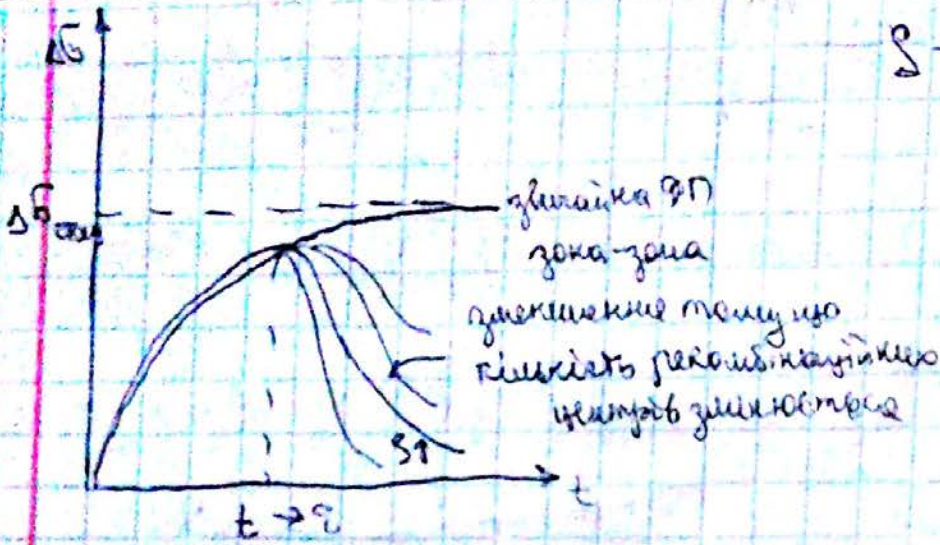 Δσ
S
Δσстац
звичайна ФП
зона-зона
зменшення тому що
кількість рекомбінаційних
центрів змінюється
S↑
t
t → τ